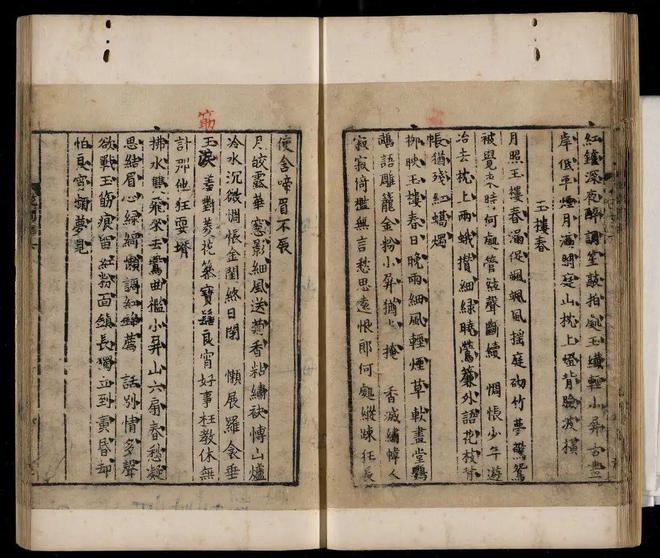 紅鑪深夜醉調笙敲拍處玉纖輕小屏古畫
岸低平煙月滿閑庭山枕上燈背臉波橫
玉樓春
月照玉樓春漏促颯颯風搖庭砌竹夢驚鴛
被覺來時何處管絃聲斷續 惆悵少年遊
冶去枕上兩蛾攢細綠曉鶯簾外語花枝背
帳猶殘紅蠟燭
柳映玉樓春日晚雨細風輕煙草軟畫堂鸚
鵡語雕籠金粉小屏猶半掩 香滅繡幃人
寂寂倚檻無言愁思遠恨郎何處縱踈狂長
使含啼眉不展
月皎露華窓影細風送菊香粘繡袂博山爐
冷水沉微惆悵金閨終日閉 懶展羅衾垂
筯
玉淚羞對菱花簪寶髻良宵好事枉教休無
計那他狂耍壻
拂水雙飛來去鷰曲檻小屏山六扇春愁凝
思結眉心綠綺懶調紅錦薦 話別情多聲
欲戰玉筯痕留紅粉面鎮長獨立到黃昏却
怕良宵頻夢見